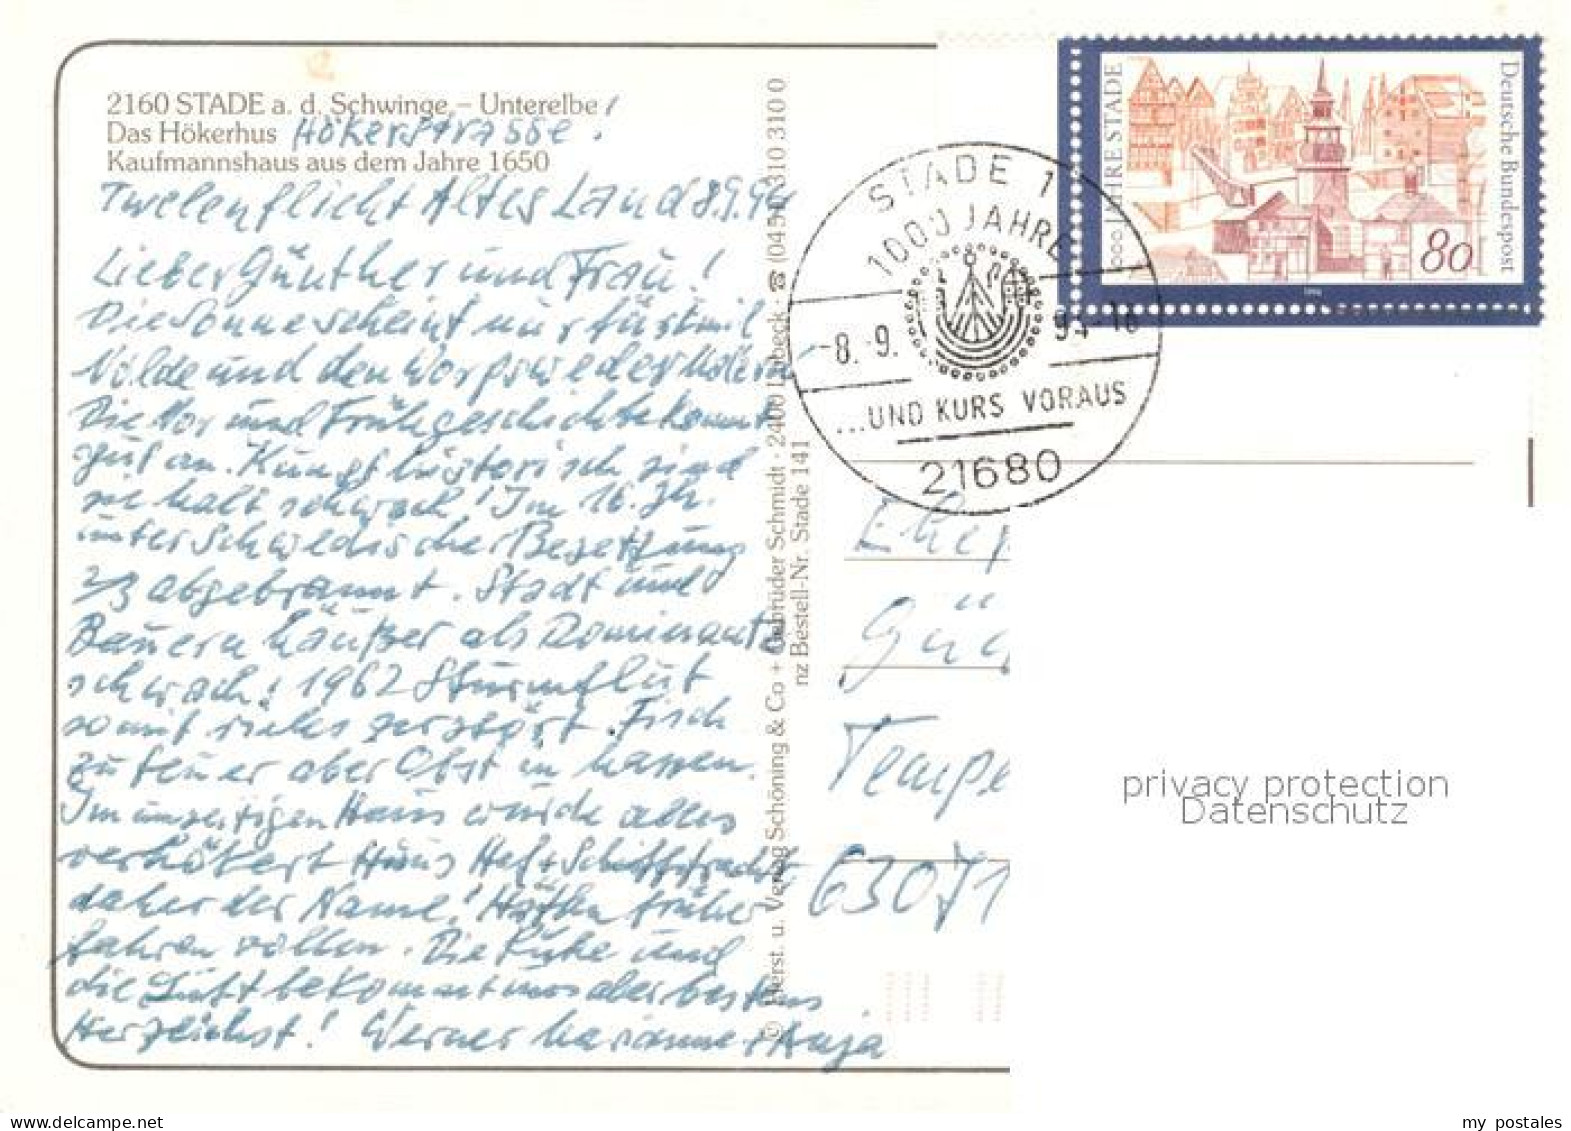 2160 STADE a. d. Schwinge – Unterelbe !
Das Hökerhus Hökerstrasse.
Kaufmannshaus aus dem Jahre 1650
Twielenfleth Altes Land 8.9.94
Lieber Günther und Frau!
Die Sonne scheint nur für Emil
Nolde und den Worpsweder Malern
Die Vor und Frühgeschichte kommt
gut an. Kunsthistorisch sind
sie halt schwach! Im 16. Jh.
unter Schwedischer Besetzung
2/3 abgebrannt. Stadt und
Bauern häußer als Dominante
schwach! 1962 Sturmflut
somit vieles zerstört. Fisch
zu teuer aber Obst in Massen.
Im umseitigen Haus wurde alles
verhökert Haus Hof + Schiffsfracht
daher der Name!
fahren wollen. Die Ruhe und
die Luft bekommt uns aber bestens
Herzlichst! Werner Marianne + Anja
© Herst. u. Verlag Schöning & Co + Gebrüder Schmidt · 2400 Lübeck · ☎ (0451) 310 310 0
nz Bestell-Nr. Stade 141
STADE 1
1000 JAHRE
-8.-9. 94-18
...UND KURS VORAUS
21680
1000 JAHRE STADE
Deutsche Bundespost
80
1994
Ehep
Gün
Tempe
63071
privacy protection
Datenschutz
my postales
delcampe.net